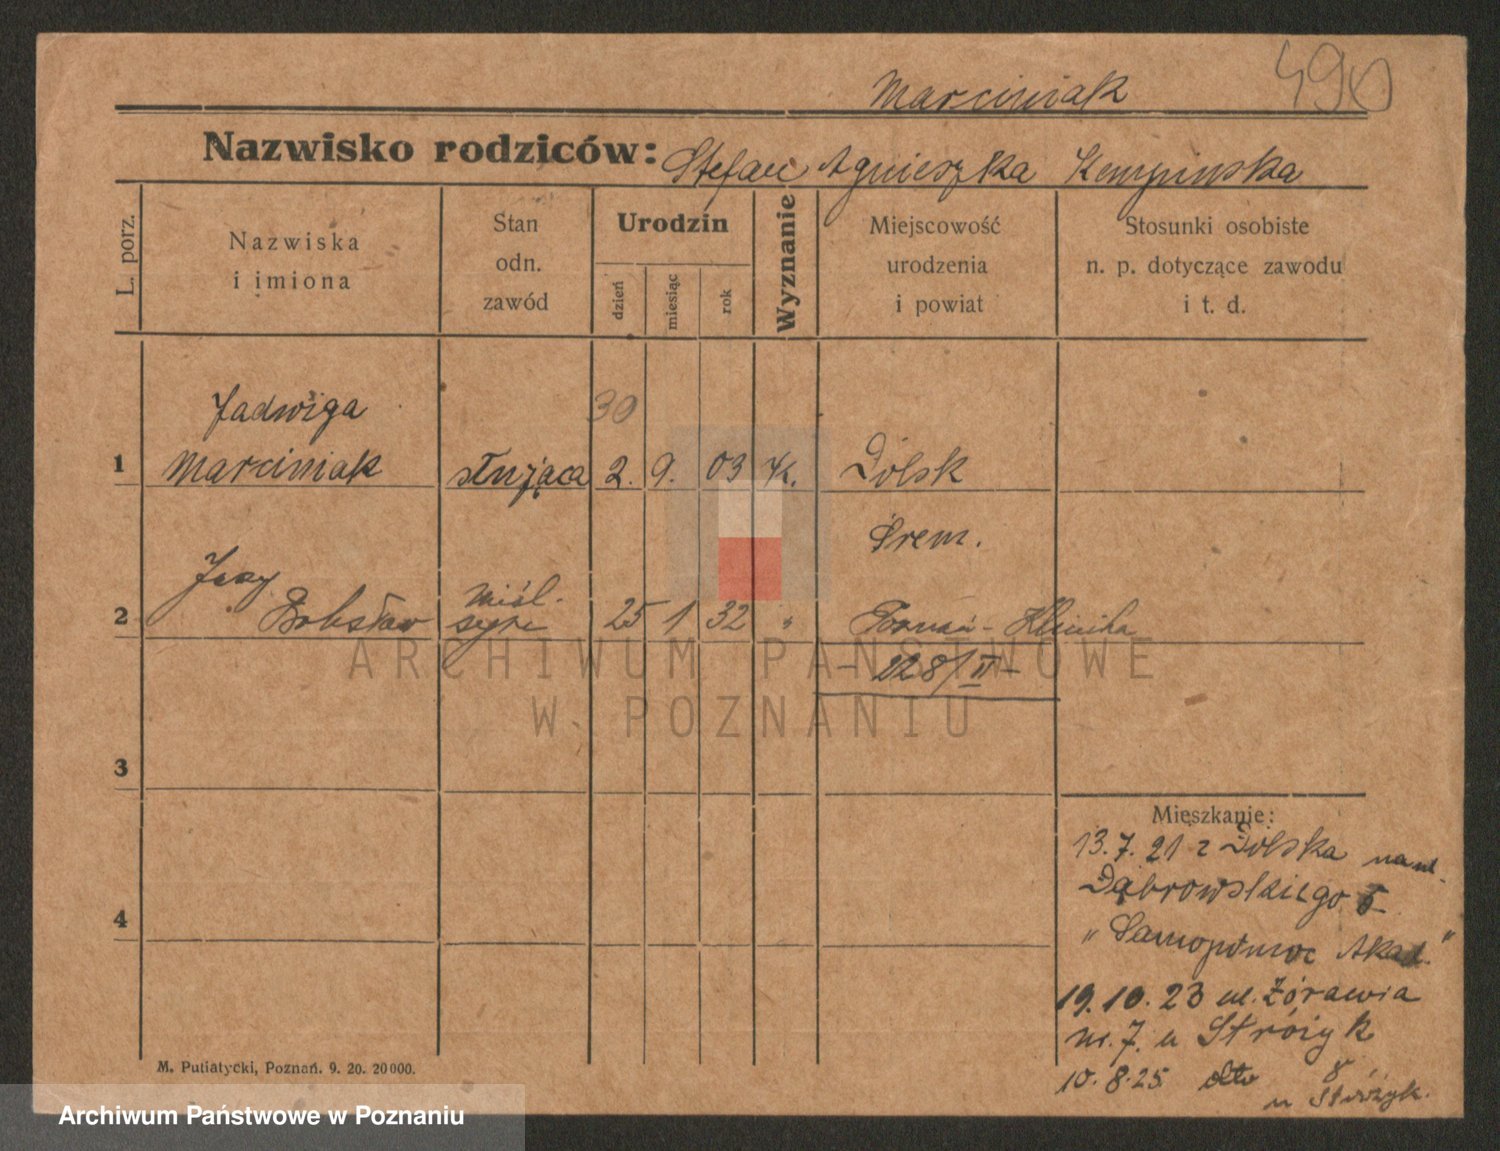 Marciniak
490
Nazwisko rodziców: Stefan Agnieszka Kempinska
L. porz.
Nazwiska i imiona
Stan odn. zawód
Urodzin
dzień
miesiąc
rok
Wyznanie
Miejscowość urodzenia i powiat
Stosunki osobiste n. p. dotyczące zawodu i t. d.
30
Jadwiga
1 Marciniak służąca 2. 9. 03 K. Dolsk
Śrem.
Jerzy
2 Bolesław 25 1 32 " Poznań - Klinika
- 228/II -
ARCHIWUM PAŃSTWOWE
W POZNANIU
3
4
Mieszkanie:
13.7.21 z Dolska na ul.
Dąbrowskiego 5
"Samopomoc Akad."
19.10.23 ul. Żórawia
nr. 7. u Stróżyk
10.8.25 dto 8
u Stróżyk.
M. Putiatycki, Poznań. 9. 20. 20000.
Archiwum Państwowe w Poznaniu